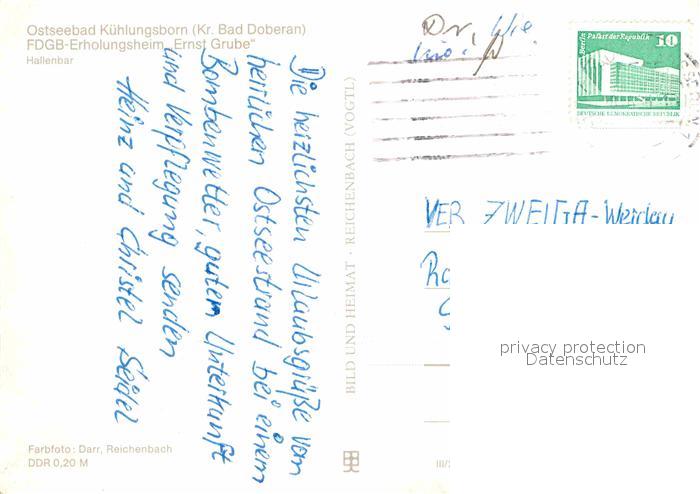 Ostseebad Kühlungsborn (Kr. Bad Doberan)
FDGB-Erholungsheim „Ernst Grube"
Hallenbar
Die herzlichsten Urlaubsgrüße vom
herrlichen Ostseestrand bei einem
Bombenwetter, gutem Unterkunft
und Verpflegung senden
Heinz und Christel Seidel
Farbfoto: Darr, Reichenbach
DDR 0,20 M
BILD UND HEIMAT · REICHENBACH (VOGTL)
III/
Berlin Palast der Republik 10
DEUTSCHE DEMOKRATISCHE REPUBLIK
Wie
VEB ZWEIGA-Werdau
privacy protection
Datenschutz